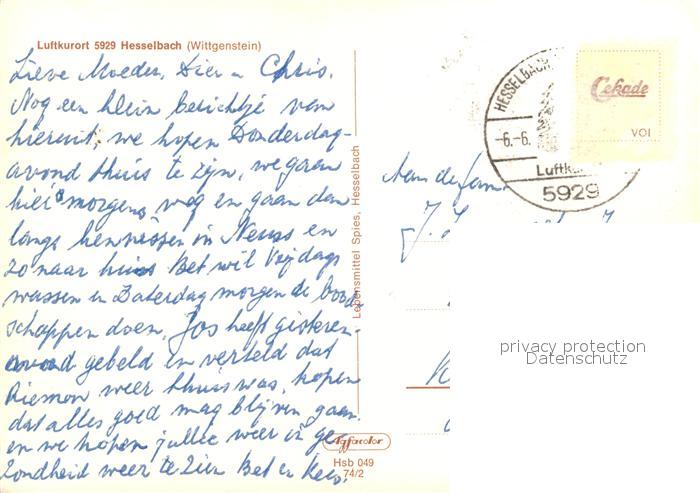 Luftkurort 5929 Hesselbach (Wittgenstein)
Lieve Moeder, Dier n Chris.
Nog een klein berichtje van
hieruit, we hopen Donderdag-
avond thuis te zijn, we gaan
hier 's morgens weg en gaan dan
langs kennissen in Neuss en
zo naar huis Bet wil Vrijdags
wassen en Zaterdag morgen de bood
schappen doen. Jos heeft gisteren-
avond gebeld en verteld dat
Riemon weer thuis was, hopen
dat alles goed mag blijven gaan.
en we hopen jullie weer in ge-
zondheid weer te zien Bet en Kees.
Lebensmittel Spies, Hesselbach
Agfacolor
Hsb 049
74/2
HESSELBACH
-6.-6.
Luftk
5929
Cekade
VOI
Aan de fam
J.
privacy protection
Datenschutz